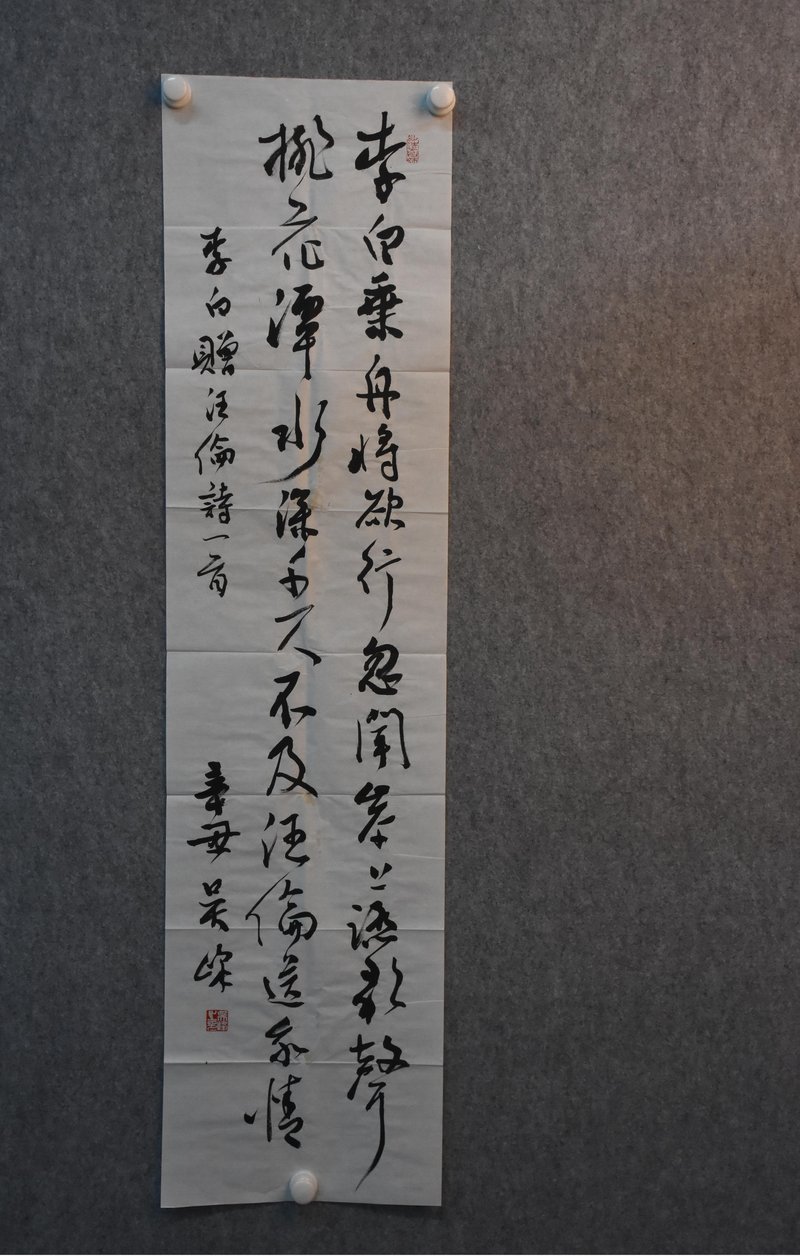 李白乘舟將欲行忽聞岸上踏歌聲
桃花潭水深千尺不及汪倫送我情
李白贈汪倫詩一首
辛丑 吴